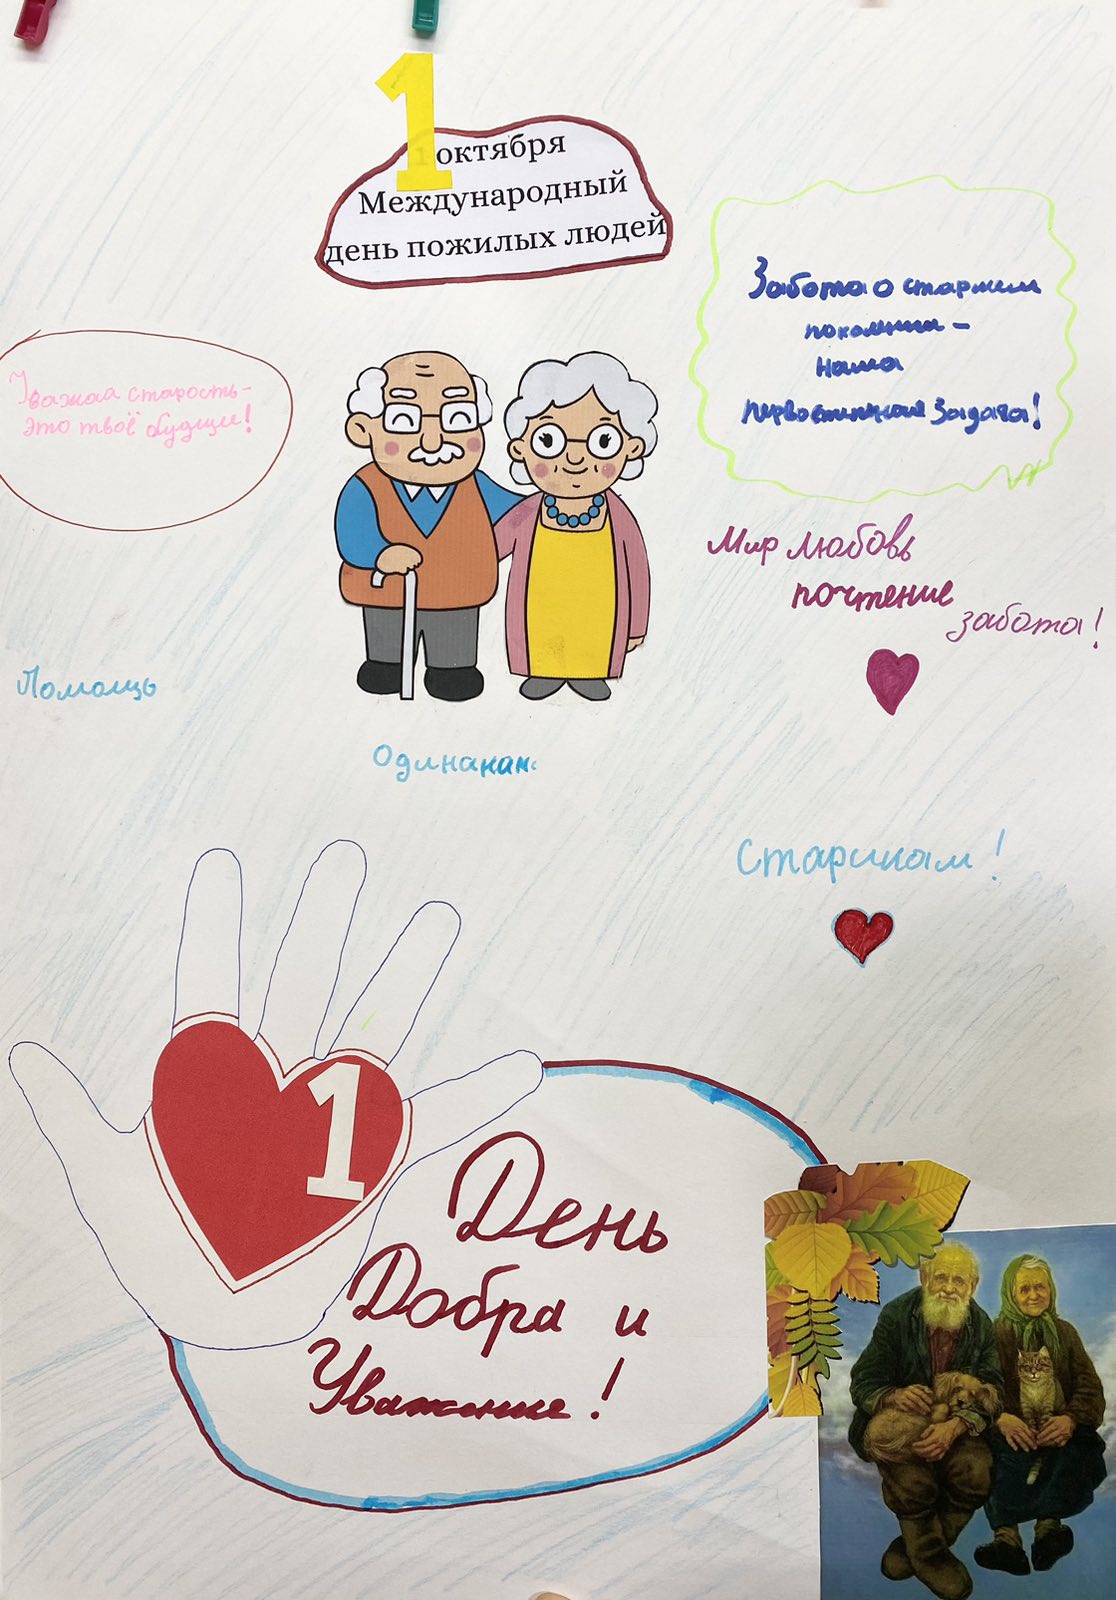 1 октября
Международный
день пожилых людей
Забота о старшем
поколении -
наша
первостепенная задача!
Уважай старость -
это твоё будущее!
Мир любовь
почтение
забота!
Помощь
Одинокам
Старикам!
1
День
Добра и
Уважение!